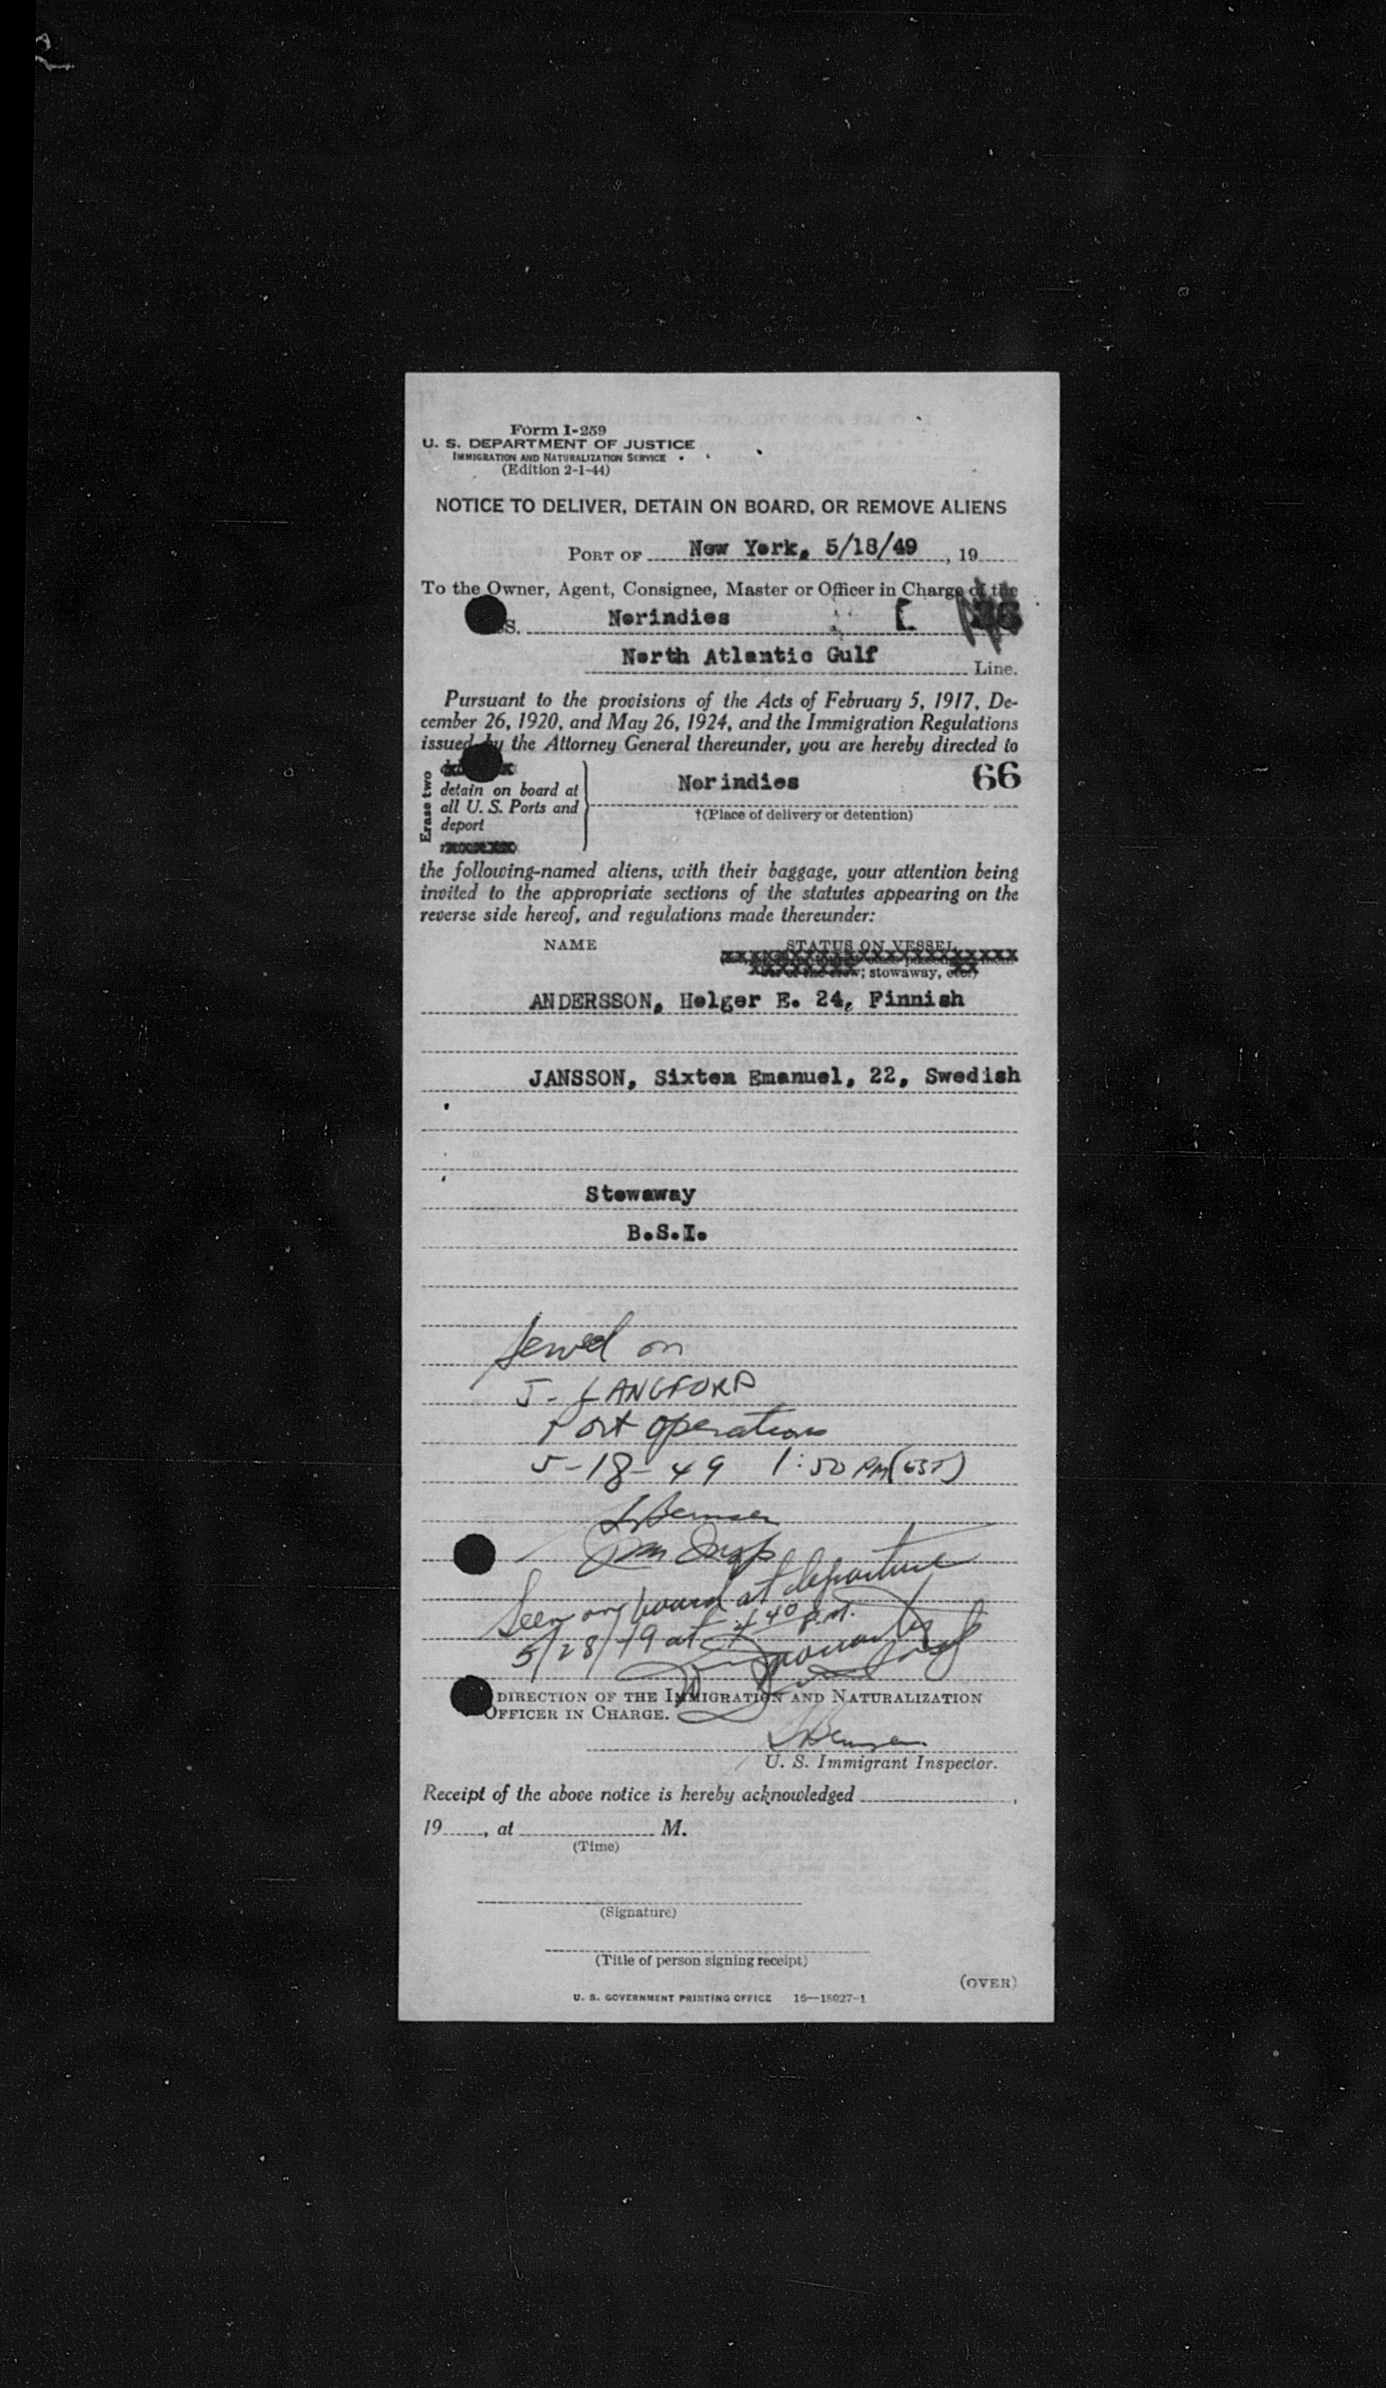 Form I-259
U. S. DEPARTMENT OF JUSTICE
IMMIGRATION AND NATURALIZATION SERVICE
(Edition 2-1-44)
NOTICE TO DELIVER, DETAIN ON BOARD, OR REMOVE ALIENS
PORT OF New York, 5/18/49, 19
To the Owner, Agent, Consignee, Master or Officer in Charge of the
S. Norindies
North Atlantic Gulf Line.
Pursuant to the provisions of the Acts of February 5, 1917, De-
cember 26, 1920, and May 26, 1924, and the Immigration Regulations
issued by the Attorney General thereunder, you are hereby directed to
Erase two
detain on board at
all U. S. Ports and
deport
Norindies 66
†(Place of delivery or detention)
the following-named aliens, with their baggage, your attention being
invited to the appropriate sections of the statutes appearing on the
reverse side hereof, and regulations made thereunder:
NAME STATUS ON VESSEL
; stowaway, etc.)
ANDERSSON, Helger E. 24, Finnish
JANSSON, Sixten Emanuel, 22, Swedish
Stowaway
B.S.I.
Served on
J. LANGFORD
Port Operations
5-18-49 1:50 PM (EST)
Imm Insp
Seen on board at departure
5/28/49 at 4 40 P.M.
DIRECTION OF THE IMMIGRATION AND NATURALIZATION
OFFICER IN CHARGE.
U. S. Immigrant Inspector.
Receipt of the above notice is hereby acknowledged ,
19 , at M.
(Time)
(Signature)
(Title of person signing receipt)
(OVER)
U. S. GOVERNMENT PRINTING OFFICE 16—18027-1